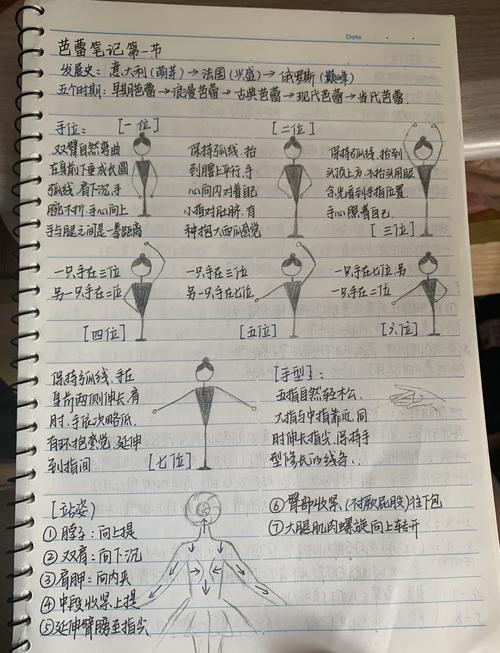 Date
芭蕾笔记第一节
发展史：意大利(萌芽)→法国(兴盛)→俄罗斯(巅峰)
五个时期：早期芭蕾→浪漫芭蕾→古典芭蕾→现代芭蕾→当代芭蕾.
手位：[一位]
双臂自然弯曲
在身前下垂成长圆
弧线，肩下沉，手
腕不折，手心向上
手与腿之间是一拳距离
[二位]
保持弧线，抬
到腰上平行，手
心向内对着自己
小指对肚脐，有
种抱大西瓜感觉
保持弧线，抬到
头顶上方，不抬头用眼
余光看到手指位置.
手心照着自己.
[三位]
一只手在三位
另一只手在二位
[四位]
一只手在三位
另一只手在七位
[五位]
一只手在七位，另
一只手在二位
[六位]
保持弧线，手在
身前两侧伸长，有
肘，手位次略低，
有环抱感觉，延伸
到指间
[七位]
[手型]：
五指自然轻松，
大指与中指靠近，同
时伸长指尖，保持手
型修长的线条.
[站姿]
①脖子：向上提
②双肩：向下沉
③肩胛：向内夹
④中段收紧上提
⑤延伸臂腰至指尖
⑥臀部收紧(不撅屁股)往下包
⑦大腿肌肉螺旋向上转开